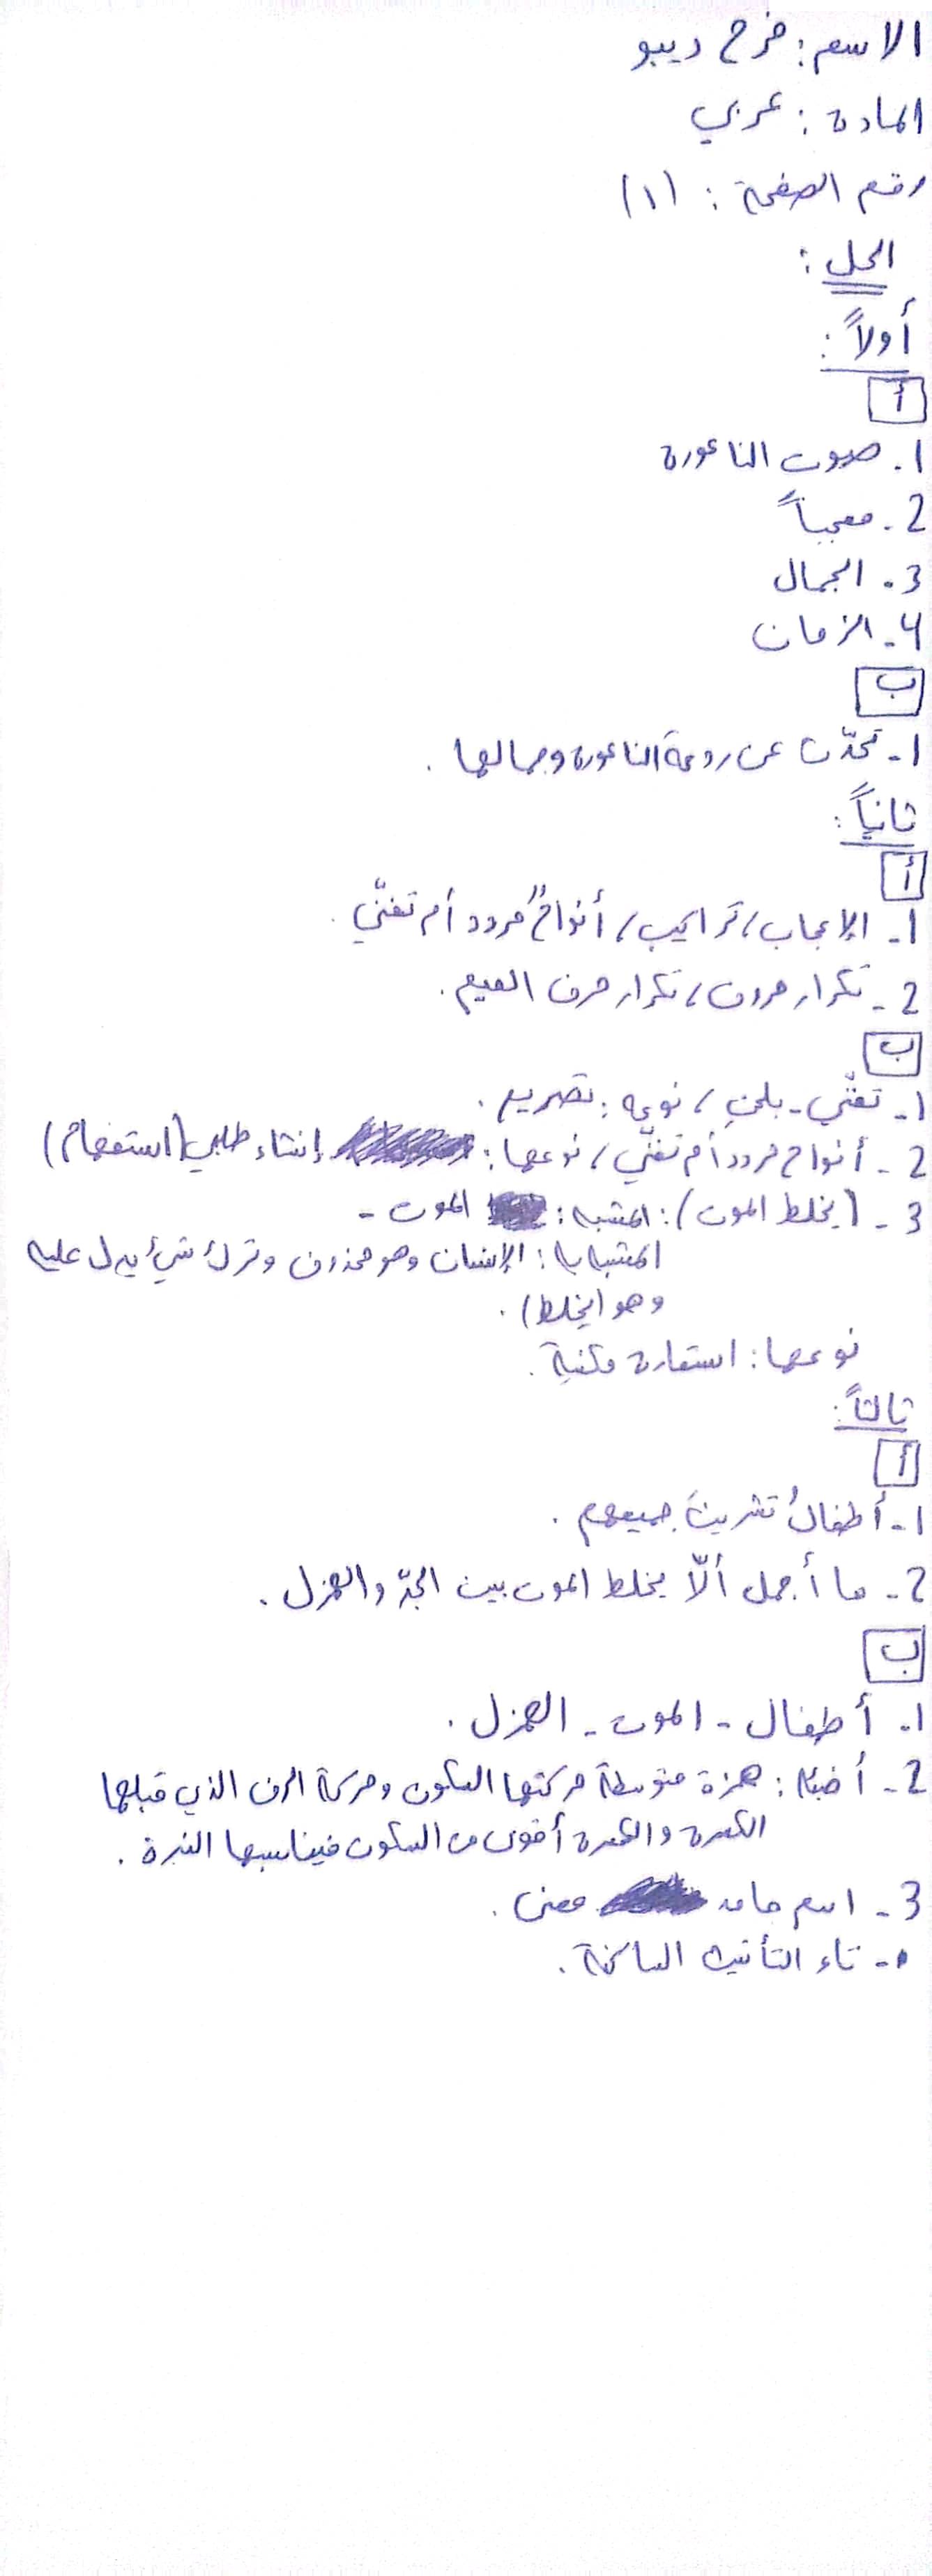 الاسم: فرح ديبو
المادة: عربي
رقم الصفحة: (١)
الحل:
أولاً:
أ
1- صوت الناعورة
2- معجباً
3- الجمال
4- الزمان
ب
1- تحدّث عن روعة الناعورة وجمالها.
ثانياً:
أ
1- الإعجاب، تراكيب، أنواحُ مردد أم تغنّي.
2- تكرار حروف، تكرار حرف الميم.
ب
1- تغنّي - بلحنِ، نوعه: تصريع.
2- أنواح مردد أم تغنّي، نوعها: إنشاء طلبي (استفهام)
3- (يخلط الموت): المشبه: الموت -
المشبه به: الإنسان وهو محذوف وترك شيء يدل عليه
وهو (يخلط).
نوعها: استعارة مكنية.
ثالثاً:
أ
1- أطفالُ تشرينَ جميعهم.
2- ما أجمل ألّا يخلط الموت بين الجدّ والهزل.
ب
1- أطفال - الموت - الهزل.
2- : همزة متوسطة حركتها السكون وحركة الحرف الذي قبلها
الكسرة والكسرة أقوى من السكون فيناسبها النبرة.
3- اسم جامد معنى.
- تاء التأنيث الساكنة.